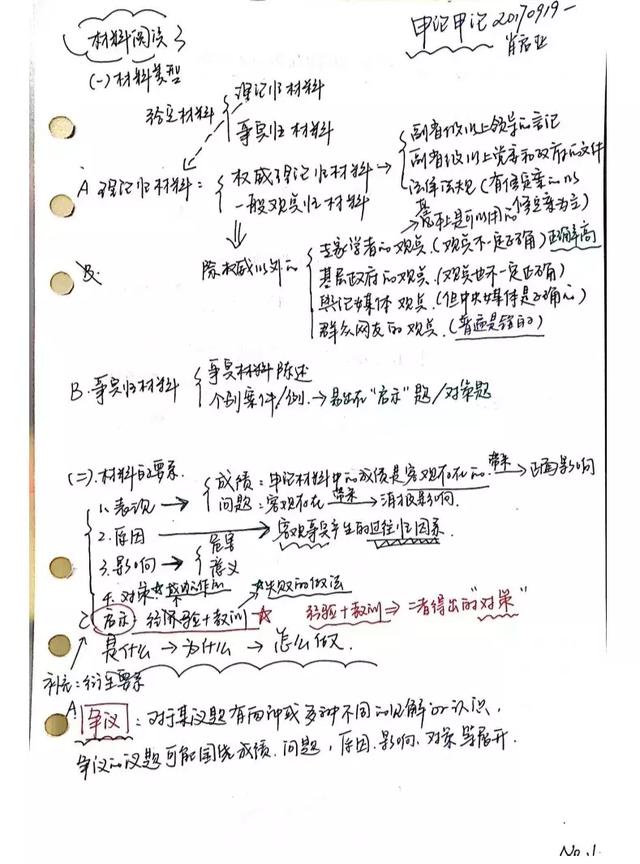 材料阅读
申论笔记 20170919-
肖启业
(一)材料类型
给定材料
理论性材料
事实性材料
A 理论性材料:
权威理论性材料
一般观点性材料
副省级以上领导的言论
副省级以上党委和政府的文件
法律法规(有修正案的以
修正案为主)
基本上是可以用的
除权威以外的
专家学者的观点.(观点不一定正确)正确率高
基层政府的观点.(观点也不一定正确)
舆论媒体观点.(但中央媒体是正确的)
群众网友的观点.(普遍是错的)
B.
B.事实性材料
事实材料陈述
个别案件/例.→易出在"启示"题/对策题
(二).材料的要素.
1.表现→
成绩:申论材料中的成绩是客观存在的.带来→正面影响
问题:客观存在带来→消极影响.
2.原因→客观事实产生的过往性因素.
3.影响→
危害
意义
4.对策☆成功的做法
☆失败的做法
启示:经济经验+教训☆ 经验+教训⇒二者得出的"对策"
是什么→为什么→怎么做.
补充:衍生要素
A 争议:对于某议题有两种或多种不同的见解or认识,
争议的议题可能围绕成绩.问题,原因.影响.对策等展开.
No.1.